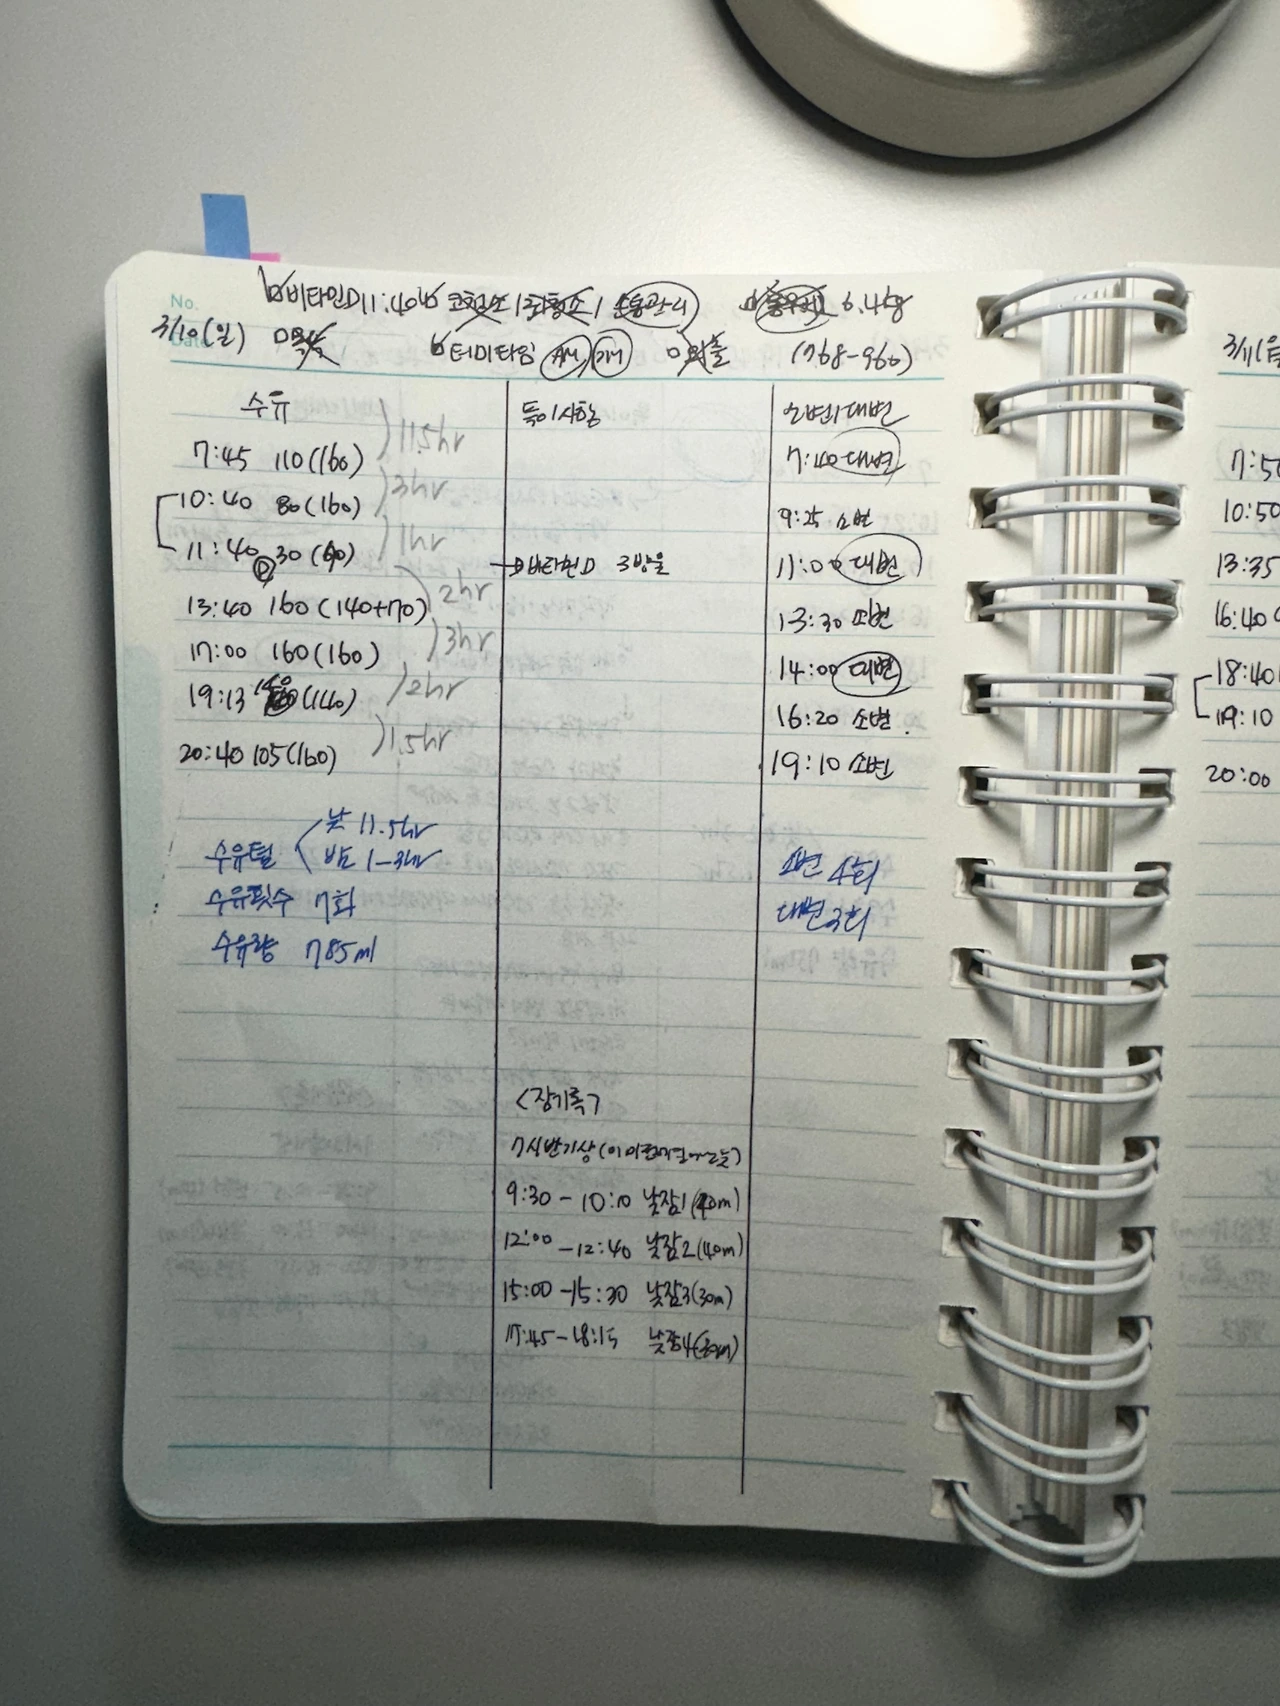 비타민D 11:40 코청소 / 귀청소 / 손톱관리 6.4kg
No.
Date
3/10(일) 목욕 터미타임 AM, PM 외출 (768-960)
수유 특이사항 소변/대변
11.5hr
7:45 110(160) 7:40 대변
3hr
10:40 80(160) 9:25 소변
1hr
11:40 D 30 → 비타민D 3방울 11:00 대변
2hr
13:40 160(140+70) 13:30 소변
3hr
17:00 160(160) 14:00 대변
2hr
19:13 140(140) 16:20 소변
1.5hr
20:40 105(160) 19:10 소변
수유텀 낮 11.5hr
밤 1-3hr 소변 4회
수유횟수 7회 대변 3회
수유량 785ml
<잠기록>
7시반기상
9:30 - 10:10 낮잠1(40m)
12:00 - 12:40 낮잠2(40m)
15:00 - 15:30 낮잠3(30m)
17:45 - 18:15 낮잠4(30m)
3/11(월
7:50
10:50
13:35
16:40
18:40
19:10
20:00